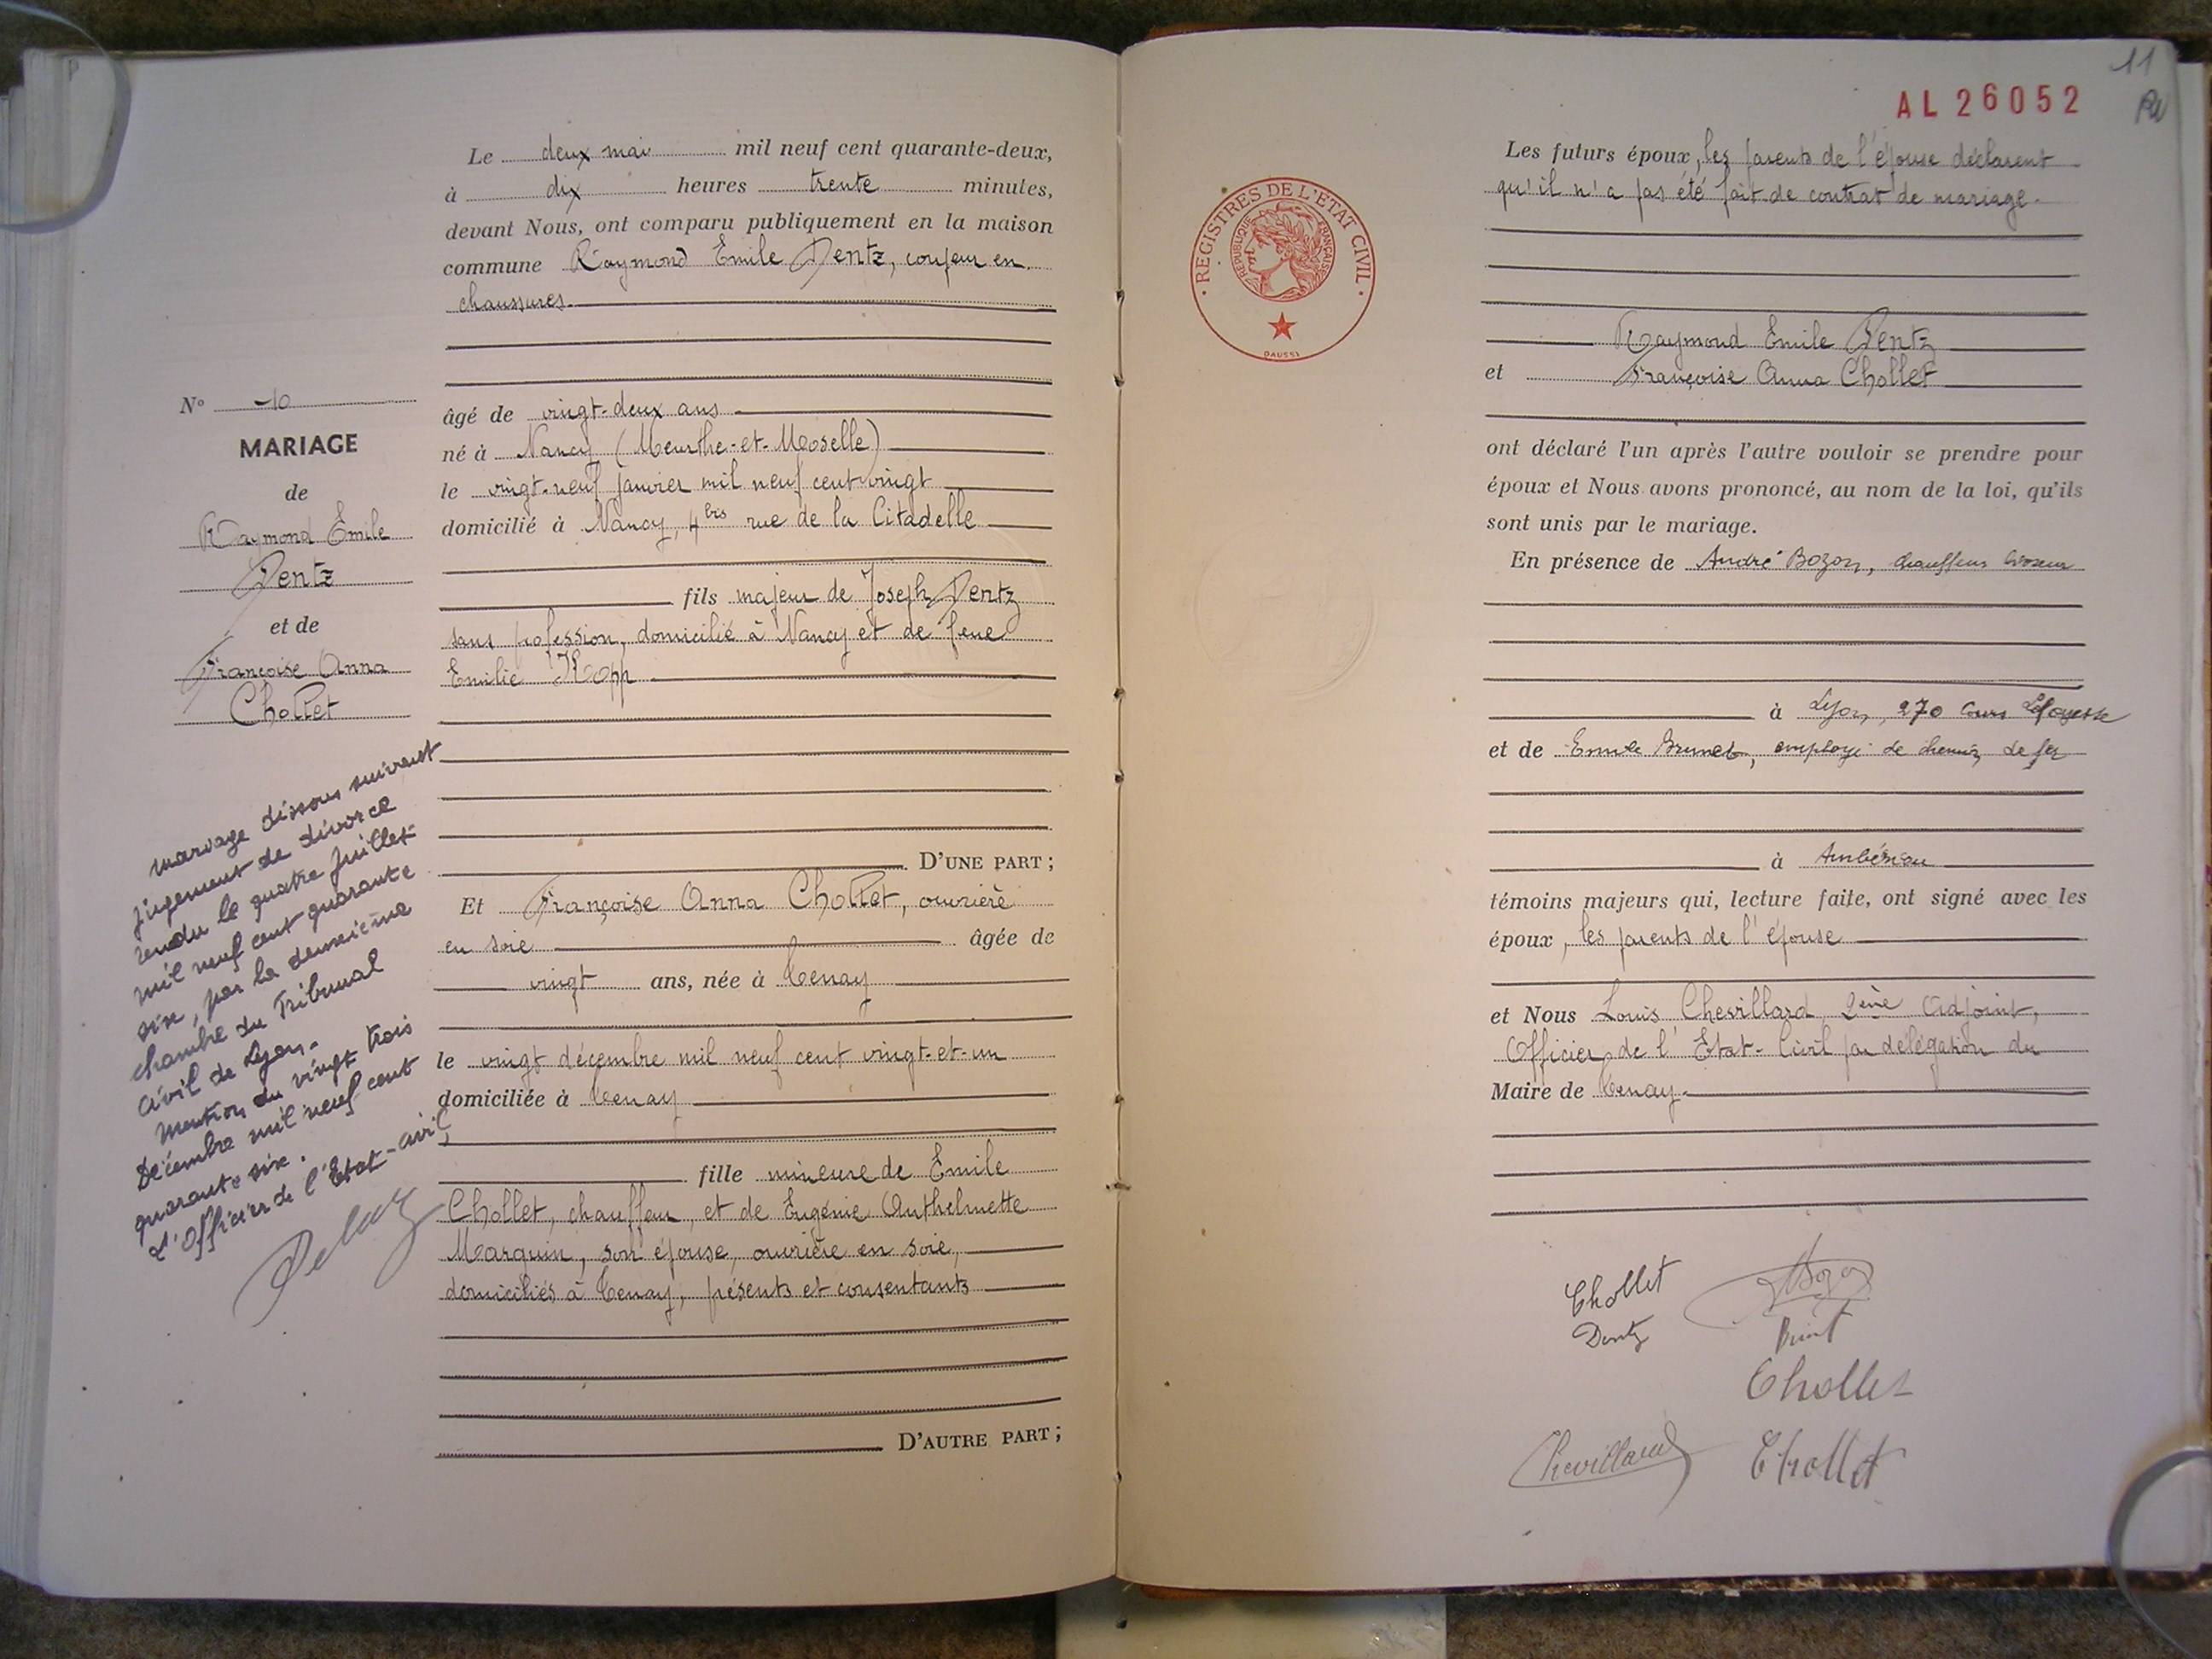 Le deux mai mil neuf cent quarante-deux,
à dix heures trente minutes,
devant Nous, ont comparu publiquement en la maison
commune Raymond Emile Dentz, coupeur en
chaussures.
âgé de vingt-deux ans
né à Nancy (Meurthe-et-Moselle)
le vingt-neuf janvier mil neuf cent vingt
domicilié à Nancy, 4bis rue de la Citadelle
fils majeur de Joseph Dentz
sans profession, domicilié à Nancy et de feue
Emilie Kopp
D'UNE PART ;
Et Françoise Anna Chollet, ouvrière
en soie âgée de
vingt ans, née à Tenay
le vingt décembre mil neuf cent vingt-et-un
domiciliée à Tenay
fille mineure de Emile
Chollet, chauffeur, et de Eugénie Anthelmette
Marquin, son épouse, ouvrière en soie,
domiciliés à Tenay, présents et consentants
D'AUTRE PART ;
N° 10
MARIAGE
de
Raymond Emile
Dentz
et de
Françoise Anna
Chollet
mariage dissous suivant
jugement de divorce
rendu le quatre juillet
mil neuf cent quarante
six, par la deuxième
chambre du Tribunal
civil de Lyon.
Mention du vingt trois
Décembre mil neuf cent
quarante six.
L'Officier de l'Etat-civil,
11
AL 26052
REGISTRES DE L'ÉTAT CIVIL
RÉPUBLIQUE FRANÇAISE
DAUSSY
Les futurs époux, les parents de l'épouse déclarent
qu'il n'a pas été fait de contrat de mariage.
Raymond Emile Dentz
et Françoise Anna Chollet
ont déclaré l'un après l'autre vouloir se prendre pour
époux et Nous avons prononcé, au nom de la loi, qu'ils
sont unis par le mariage.
En présence de André Bozon, chauffeur livreur
à Lyon, 270 Cours Lafayette
et de Emile Brunet, employé de chemin de fer
à Ambérieu
témoins majeurs qui, lecture faite, ont signé avec les
époux, les parents de l'épouse
et Nous Louis Chevillard, 2ème Adjoint,
Officier de l'Etat-Civil par délégation du
Maire de Tenay.
Chollet
Bozon
Dentz
Chollet
Chevillard
Chollet